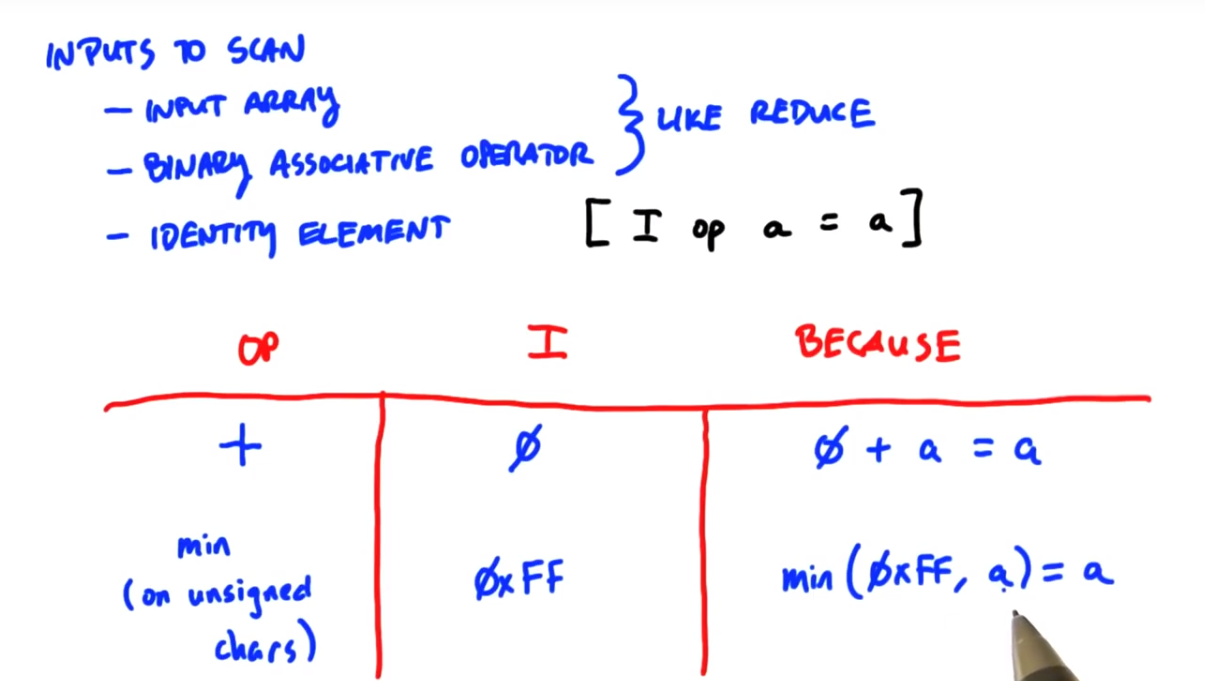 INPUTS TO SCAN
- INPUT ARRAY
- BINARY ASSOCIATIVE OPERATOR } LIKE REDUCE
- IDENTITY ELEMENT [ I op a = a ]
OP I BECAUSE
+ Ø Ø + a = a
min (on unsigned chars) ØxFF min (ØxFF, a) = a